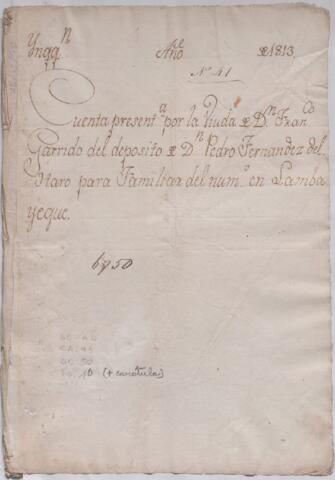 Ynqqn Año de 1813.
No 41
Cuenta presenta por la Viuda de Dn Franco
Garrido del deposito de Dn Pedro Fernandez del
Haro para Familiar del numo en Lamba
yeque.
6y50
GO-AL
CA:44
DO:50
Fs: 10 (+ caratula)